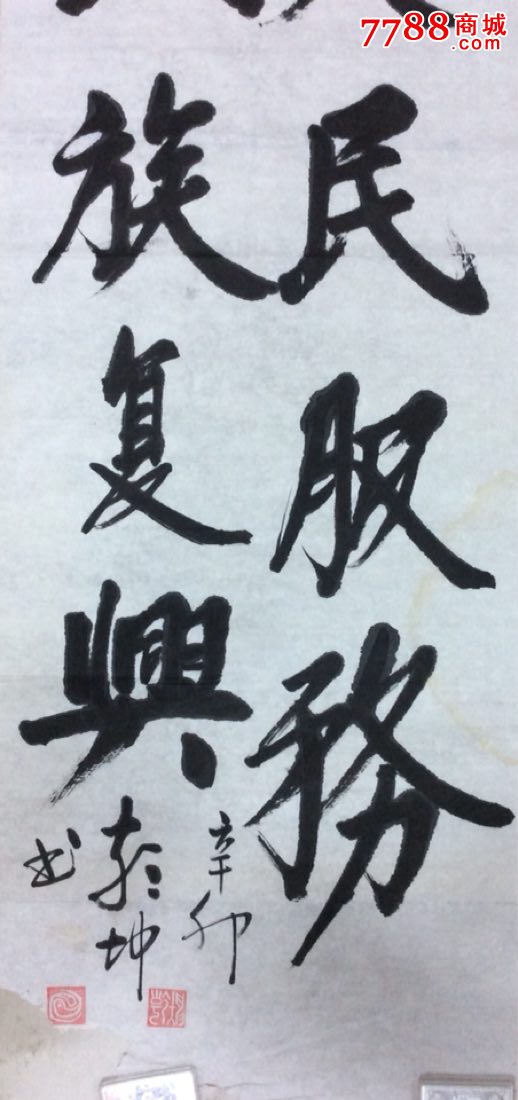 7788商城
.com
民服務
族复興
辛卯
乾坤
书